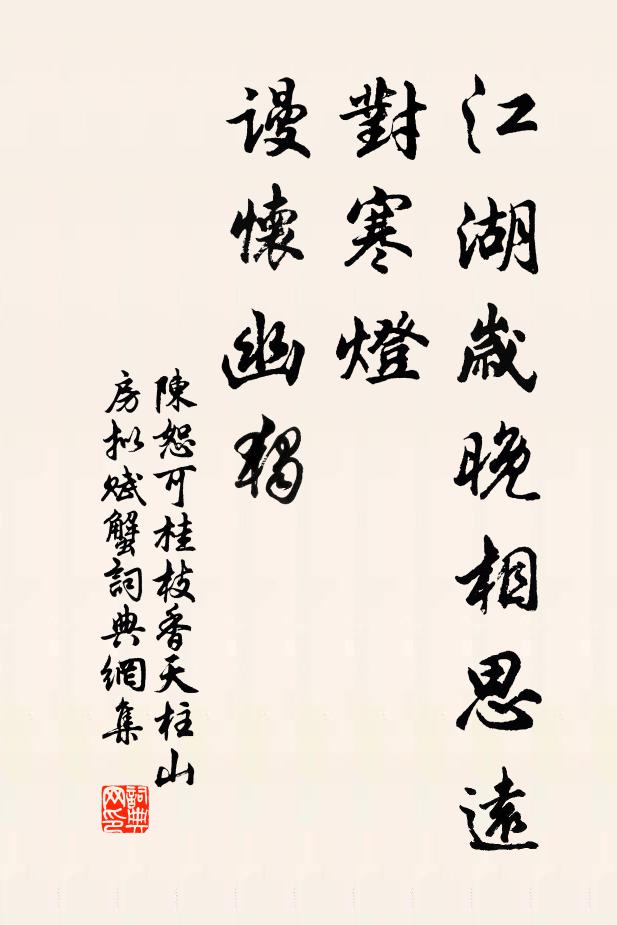 江湖歲晚相思遠
對寒燈
謾懷幽獨
陳恕可桂枝香天柱山
房拟賦蟹詞典網集
詞典
网印